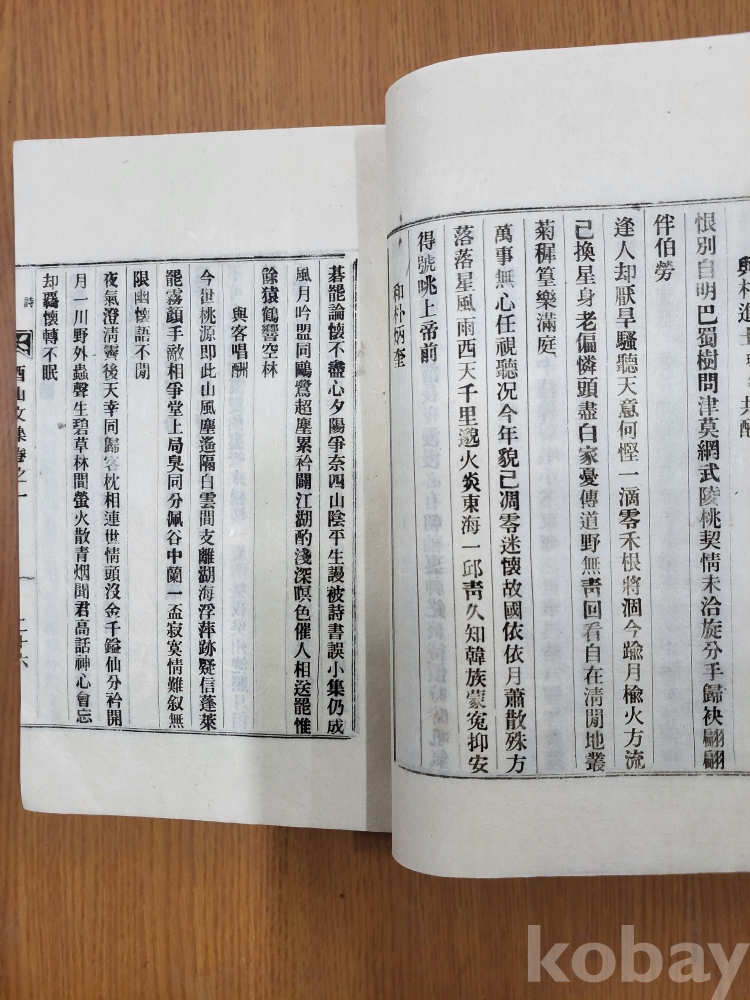 與朴進士
共酬
恨別自明巴蜀樹問津莫網武陵桃契情未洽旋分手歸袂翩翩
伴伯勞
逢人却厭旱騷聽天意何慳一滴零禾根將涸今踰月楡火方流
己換星身老偏憐頭盡白家憂傳道野無靑回看自在淸閒地叢
菊穉篁樂滿庭
萬事無心任視聽况今年貌己凋零迷懷故國依依月蕭散殊方
落落星風雨西天千里邈火炎東海一邱靑久知韓族蒙寃抑安
得號咷上帝前
和朴炳奎
碁罷論懷不盡心夕陽爭奈四山陰平生謾被詩書誤小集仍成
風月吟盟同鷗鷺超塵累衿闢江湖酌淺深暝色催人相送罷惟
餘猿鶴響空林
與客唱酬
今世桃源即此山風塵遙隔白雲間支離湖海浮萍跡疑信蓬萊
罷霧顔手敵相爭堂上局臭同分佩谷中蘭一盃寂寞情難叙無
限幽懷語不閒
夜氣澄淸霽後天幸同歸客枕相連世情頭沒金千鎰仙分衿開
月一川野外蟲聲生碧草林間螢火散靑烟聞君高話神心會忘
却羇懷轉不眠
詩
酉山文集卷之二
二十六
kobay